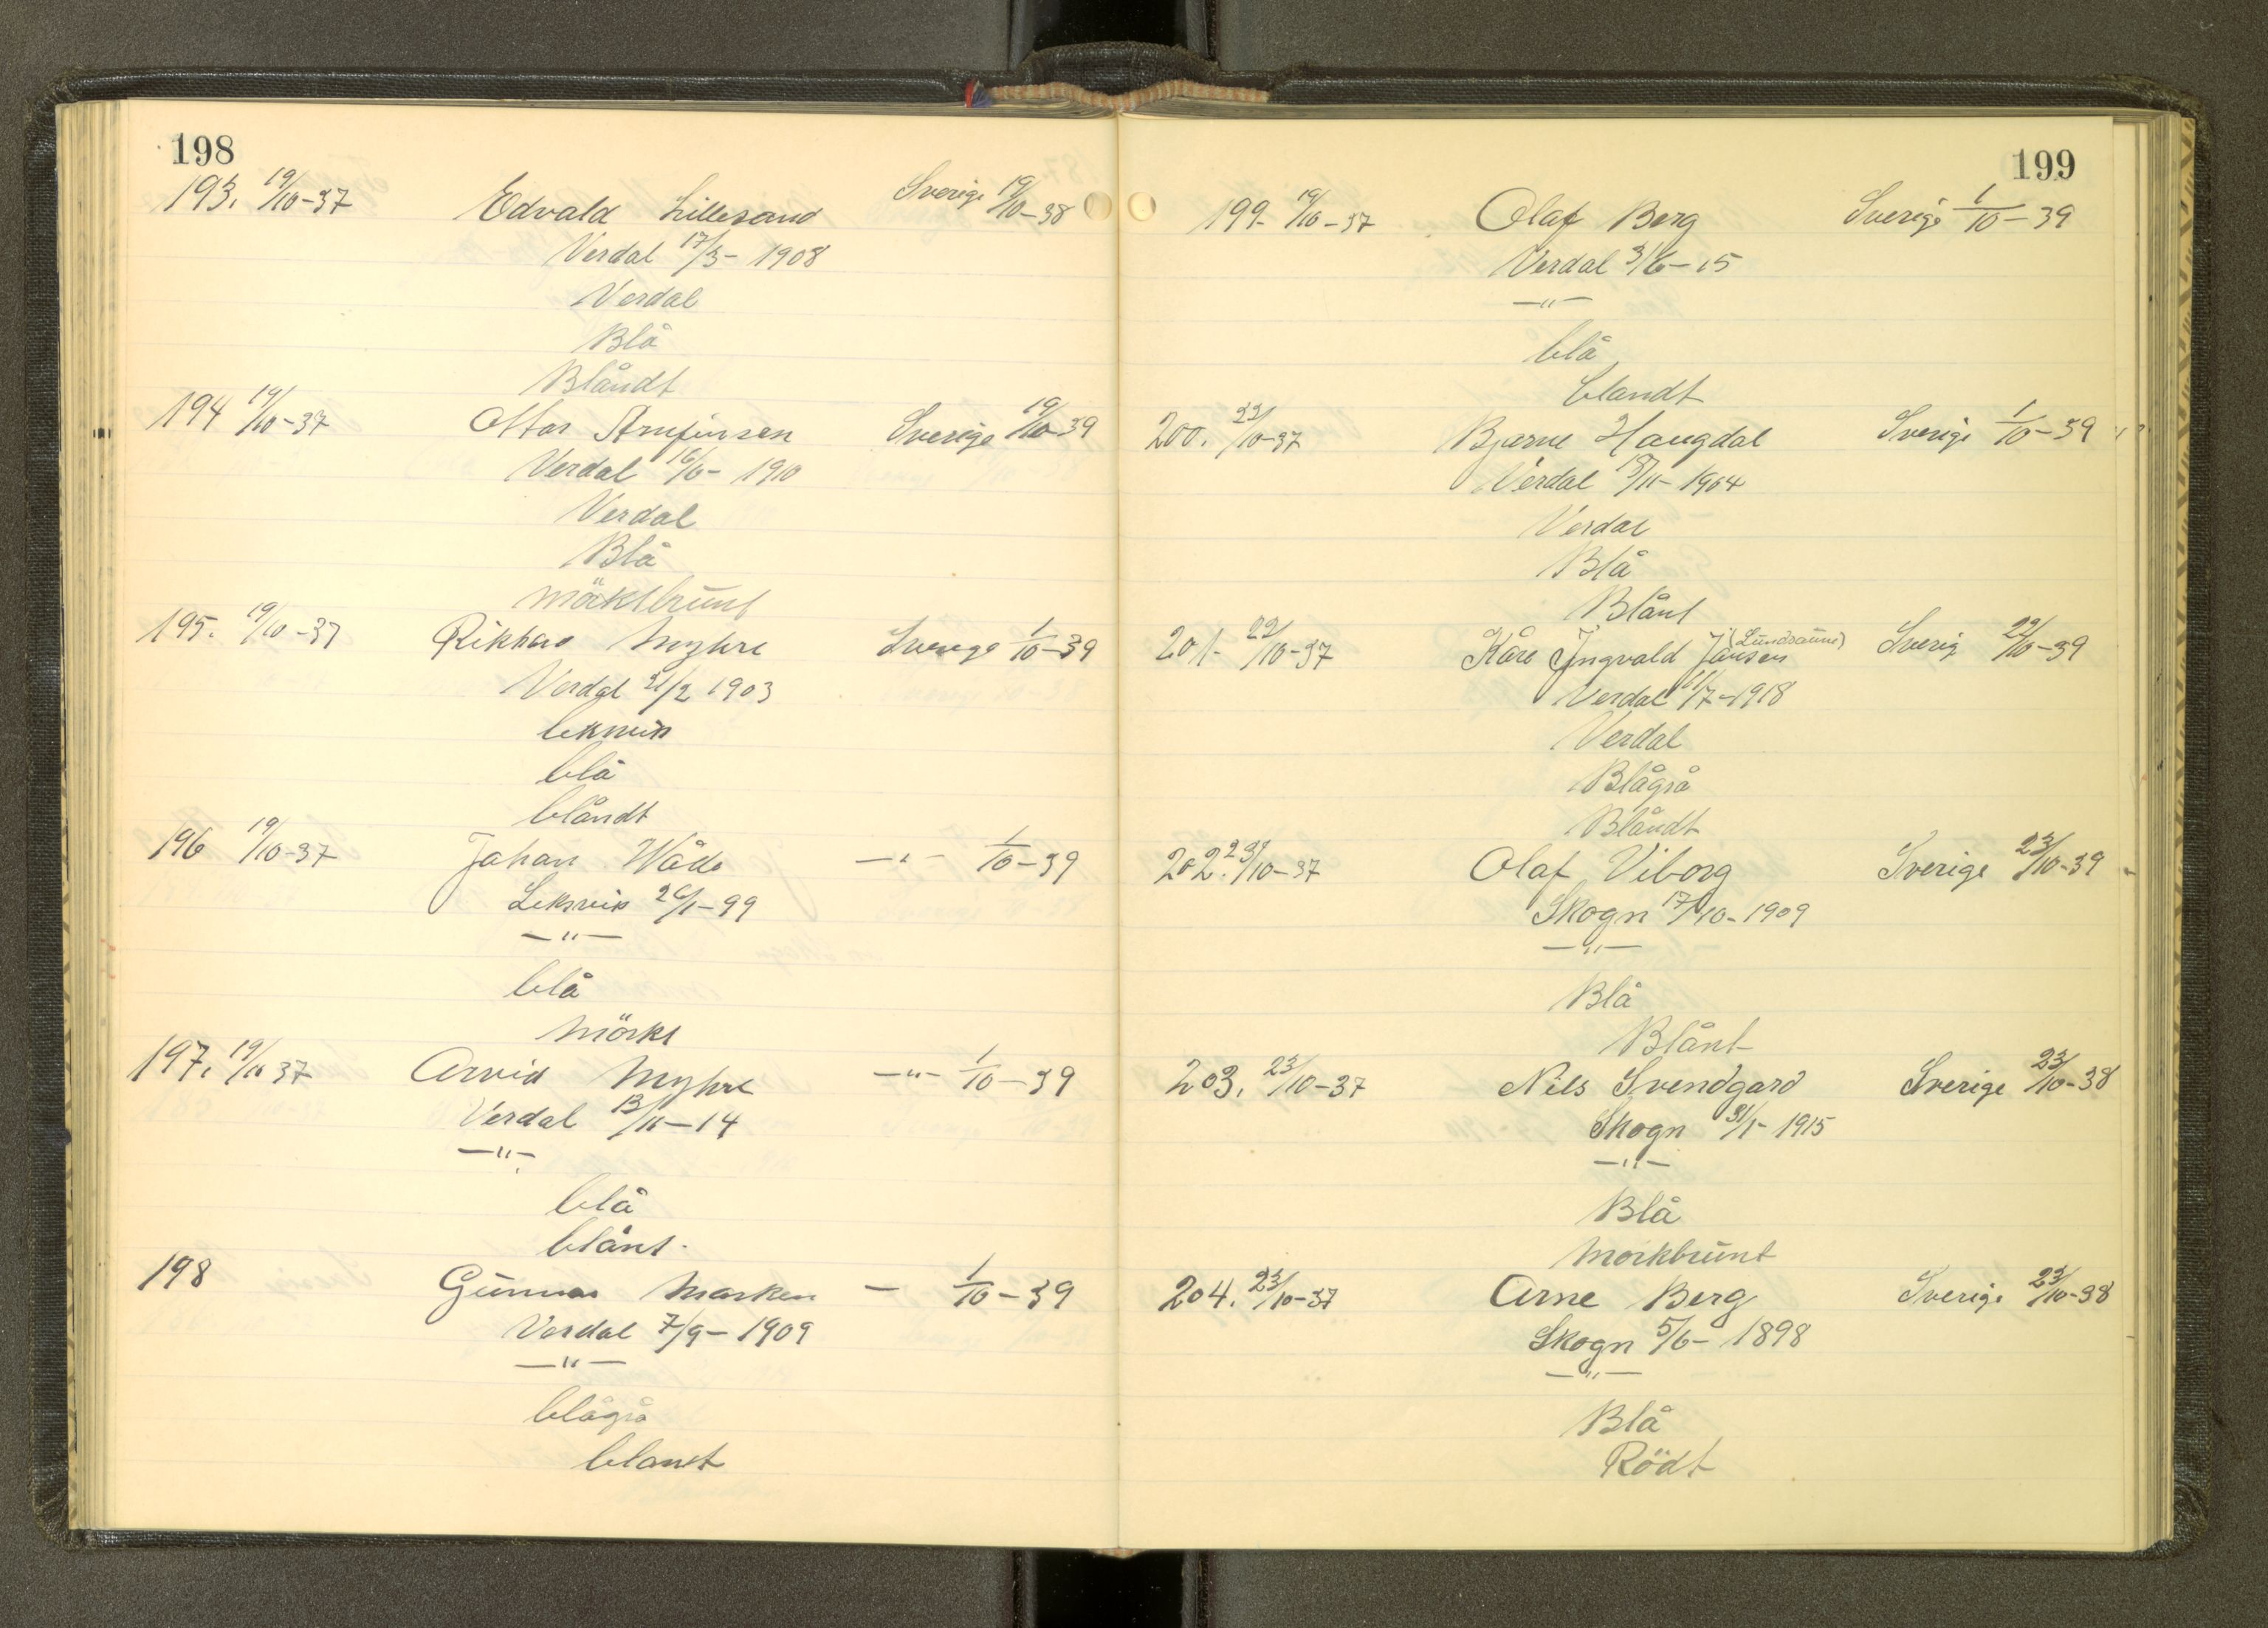 198
193. 19/10-37 Edvald Lillesand Sverige 19/10-38
Verdal 17/3- 1908
Verdal
Blå
Blåndt
194 19/10-37 Ottar Arnfinsen Sverige 19/10-39
Verdal 16/6- 1910
Verdal
Blå
mörktbrunt
195. 19/10-37 Rikhar Myhre Sverige 1/10-39
Verdal 21/2 1903
leksvik
blå
blåndt
196 19/10-37 Johan Wåde —"— 1/10-39
Leksvik 26/1-99
—"—
blå
mörkt
197. 19/10 37 Arvid Myhre —"— 1/10-39
Verdal 13/11-14
—"—
blå
blånt.
198 Gunnar Marken — 1/10-39
Verdal 7/9- 1909
—"—
blågrå
blandt
199
199- 19/10-37 Olaf Berg Sverige 1/10-39
Verdal 3/6-15
—"—
blå
blandt
200. 22/10-37 Bjarne Haugdal Sverige 1/10-39
Verdal /11- 1904
Verdal
Blå
Blånt
201- 22/10-37 Kåre Ingvald Jansen (Lundsaune) Sverig 22/10-39
Verdal /7-1918
Verdal
Blågrå
Blåndt
202. 23/10-37 Olaf Viborg Sverige 23/10-39
Skogn 17/10-1909
—"—
Blå
Blånt
203. 23/10-37 Nils Svendgard Sverige 23/10-38
Skogn 31/1- 1915
—"—
Blå
Morkbrunt
204. 23/10-37 Arne Berg Sverige 23/10-38
Skogn 5/6- 1898
—"—
Blå
Rödt